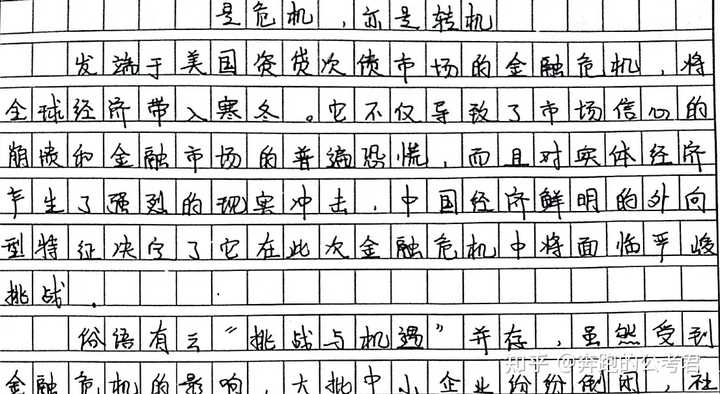 是危机，亦是转机
发端于美国资贷次债市场的金融危机，将
全球经济带入寒冬。它不仅导致了市场信心的
崩溃和金融市场的普遍恐慌，而且对实体经济
产生了强烈的现实冲击，中国经济鲜明的外向
型特征决定了它在此次金融危机中将面临严峻
挑战．
俗语有云“挑战与机遇”并存，虽然受到
金融危机的影响，大批中小企业纷纷倒闭，社
知乎 @奔跑的公考君